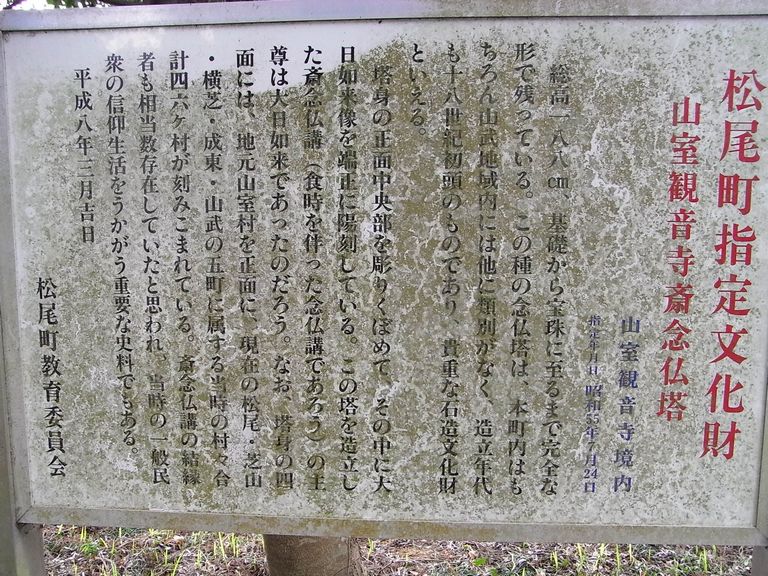 松尾町指定文化財
山室観音寺斎念仏塔
山室観音寺境内
指定年月日 昭和55年 月24日
総高一八八㎝、基礎から宝珠に至るまで完全な
形で残っている。この種の念仏塔は、本町内はも
ちろん山武地域内には他に類別がなく、造立年代
も十八世紀初頭のものであり、貴重な石造文化財
といえる。
塔身の正面中央部を彫りくぼめて、その中に大
日如来像を端正に陽刻している。この塔を造立し
た斎念仏講（食時を伴った念仏講であろう）の主
尊は大日如来であったのだろう。なお、塔身の四
面には、地元山室村を正面に、現在の松尾・芝山
・横芝・成東・山武の五町に属する当時の村々合
計四六ヶ村が刻みこまれている。斎念仏講の結縁
者も相当数存在していたと思われ、当時の一般民
衆の信仰生活をうかがう重要な史料でもある。
平成八年三月吉日
松尾町教育委員会